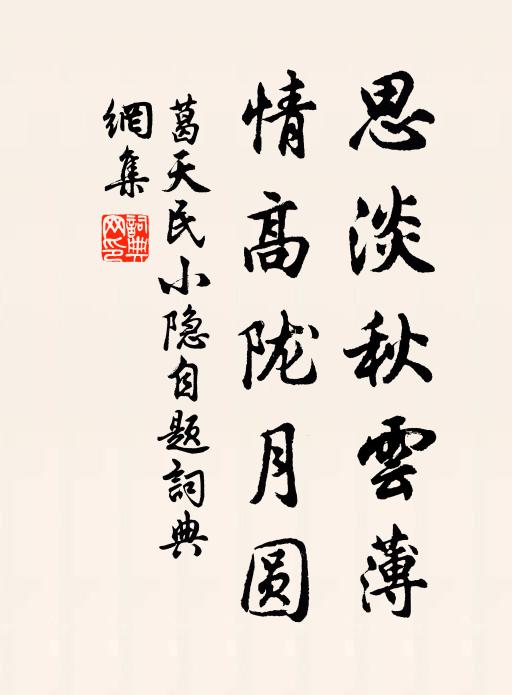 思淡秋雲薄
情高陇月圆
葛天民小隐自题詞典
網集
詞典网印